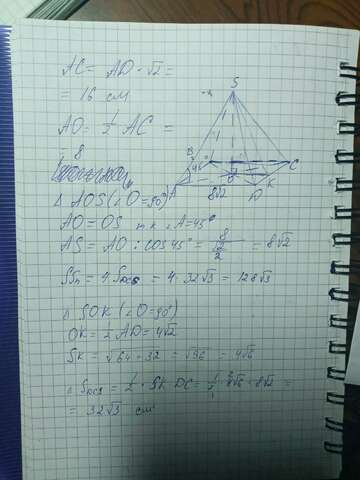 AC = AD · √2 =
= 16 см
AO = 1/2 AC =
= 8
△ AOS (∠O = 90°)
AO = OS т к ∠A = 45°
AS = AO : cos 45° = 8 / (√2/2) = 8√2
Sбп = 4 · S_DCS = 4 · 32√3 = 128√3
△ SOK (∠O = 90°)
OK = 1/2 AD = 4√2
SK = √64 + 32 = √96 = 4√6
S_DCS = 1/2 · SK · DC = 1/2 · 4√6 · 8√2 =
= 32√3 см
S
B
45°
C
A
O
K
D
8√2